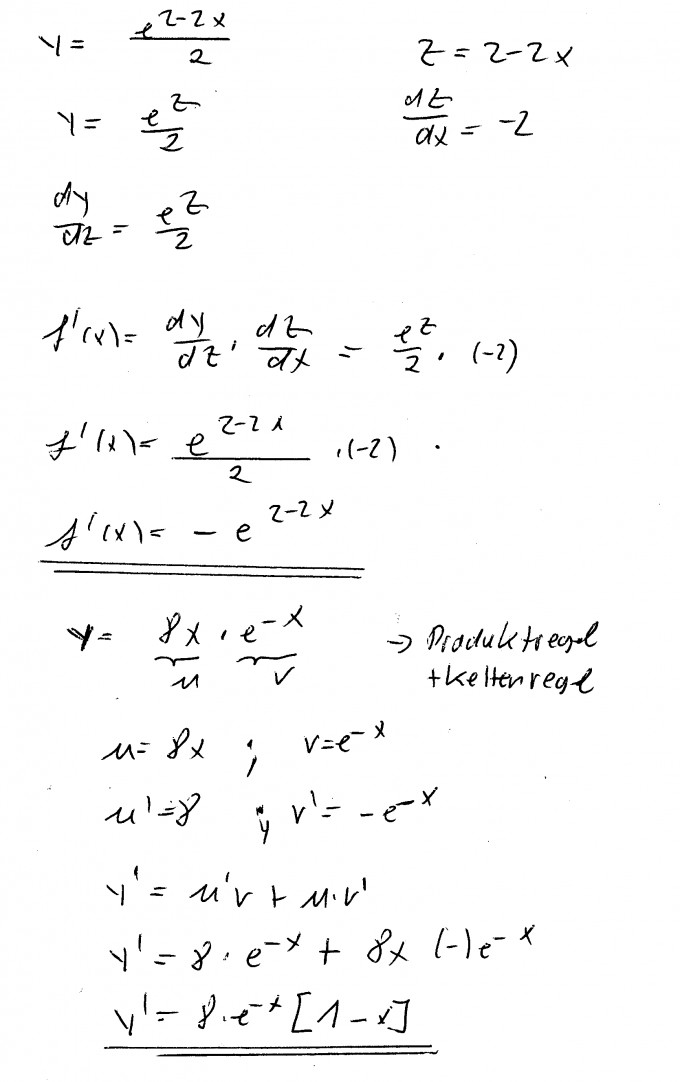 y = e^(2-2x)/2    z = 2-2x
y = e^z/2    dz/dx = -2
dy/dz = e^z/2
f'(x) = dy/dz · dz/dx = e^z/2 · (-2)
f'(x) = e^(2-2x)/2 · (-2)
f'(x) = - e^(2-2x)
y = 8x · e^-x → Produktregel
u v + Kettenregel
u = 8x ; v = e^-x
u' = 8 ; v' = -e^-x
y' = u'v + u·v'
y' = 8 · e^-x + 8x (-) e^-x
y' = 8·e^-x [1-x]